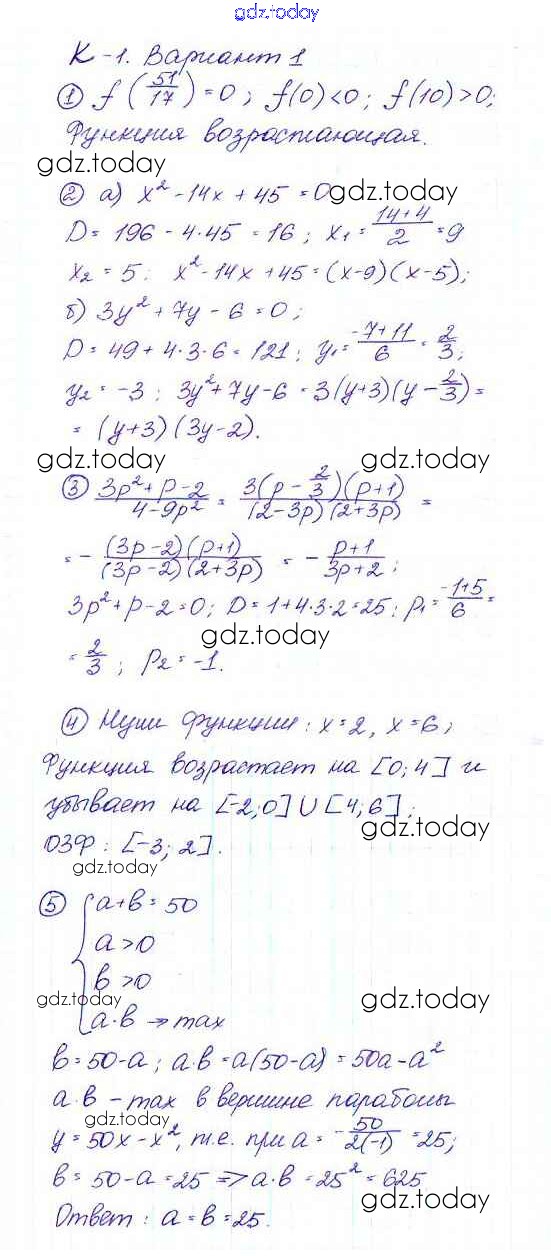 gdz.today
К-1. Вариант 1
① f(51/17) = 0; f(0) < 0; f(10) > 0;
Функция возрастающая.
gdz.today
② а) x² - 14x + 45 = 0 gdz.today
D = 196 - 4·45 = 16; x₁ = (14+4)/2 = 9
x₂ = 5; x² - 14x + 45 = (x-9)(x-5);
б) 3y² + 7y - 6 = 0;
D = 49 + 4·3·6 = 121; y₁ = (-7+11)/6 = 2/3;
y₂ = -3; 3y² + 7y - 6 = 3(y+3)(y - 2/3) =
= (y+3)(3y-2).
gdz.today gdz.today
③ (3p² + p - 2)/(4 - 9p²) = 3(p - 2/3)(p+1)/((2-3p)(2+3p)) =
= - (3p-2)(p+1)/((3p-2)(2+3p)) = - (p+1)/(3p+2);
3p² + p - 2 = 0; D = 1 + 4·3·2 = 25; p₁ = (-1+5)/6 =
gdz.today
= 2/3; p₂ = -1.
gdz.today
④ Нули функции: x = 2, x = 6;
Функция возрастает на [0; 4] и
убывает на [-2; 0] ∪ [4; 6];
ОЗФ: [-3; 2].
gdz.today gdz.today
⑤ { a + b = 50
a > 0
b > 0
gdz.today gdz.today
a·b → max
b = 50 - a; a·b = a(50-a) = 50a - a²
a·b - max в вершине параболы
gdz.today
y = 50x - x², т.е. при a = - 50/(2(-1)) = 25;
b = 50 - a = 25 => a·b = 25² = 625
gdz.today
Ответ: a = b = 25.